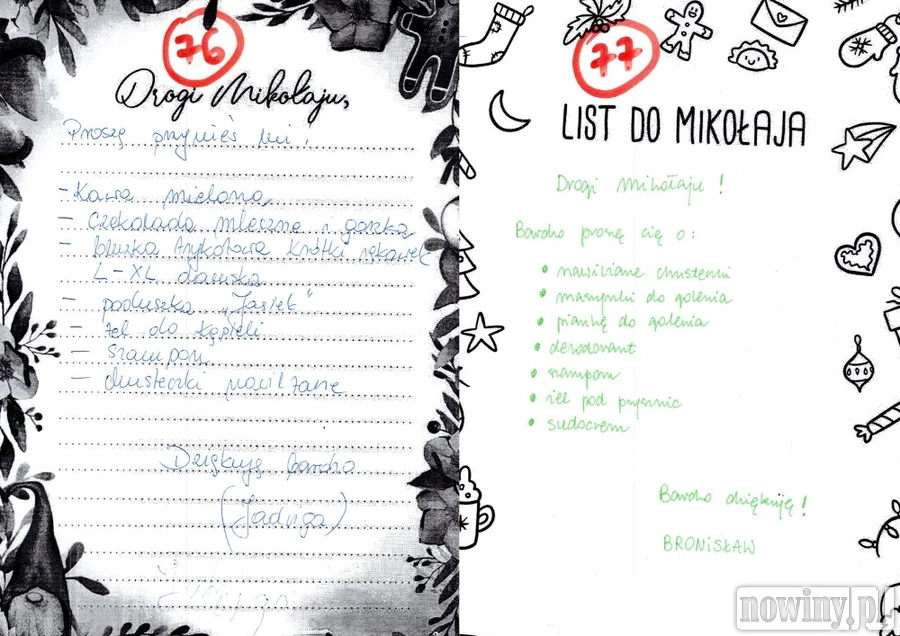 76
Drogi Mikołaju,
Proszę przynieś mi!
- Kawa mielona
- Czekolada mleczna i gorzka
- bluzka trykotowa krótki rękawek
L-XL damska
- poduszka "Jasiek"
- żel do kąpieli
- szampon
- chusteczki nawilżane
Dziękuję bardzo
(Jadwiga)
77
LIST DO MIKOŁAJA
Drogi Mikołaju!
Bardzo proszę cię o:
• nawilżane chusteczki
• maszynki do golenia
• piankę do golenia
• dezodorant
• szampon
• żel pod prysznic
• sudocrem
Bardzo dziękuję!
BRONISŁAW
nowiny.pl